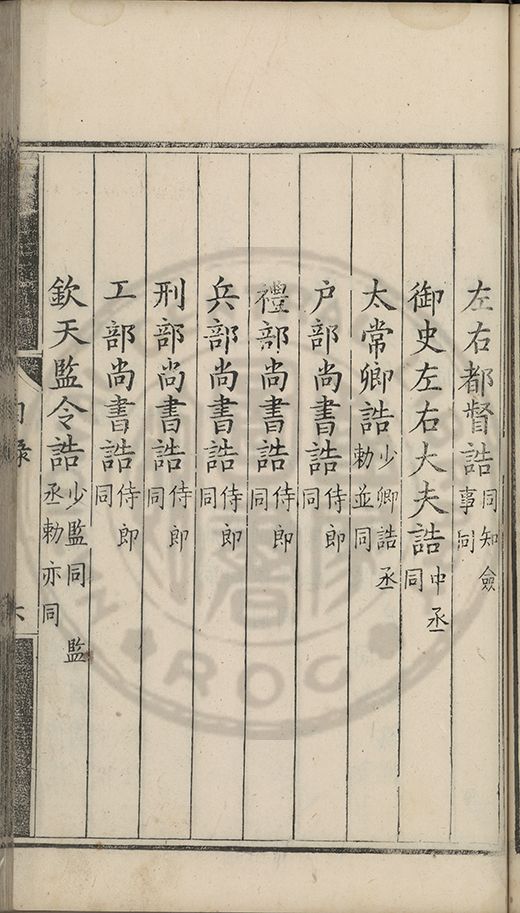 左右都督誥同知僉事同
御史左右大夫誥中丞同
太常卿誥少卿誥丞勅並同
戶部尚書誥侍郎同
禮部尚書誥侍郎同
兵部尚書誥侍郎同
刑部尚書誥侍郎同
工部尚書誥侍郎同
欽天監令誥少監同監丞勅亦同
六
ROC